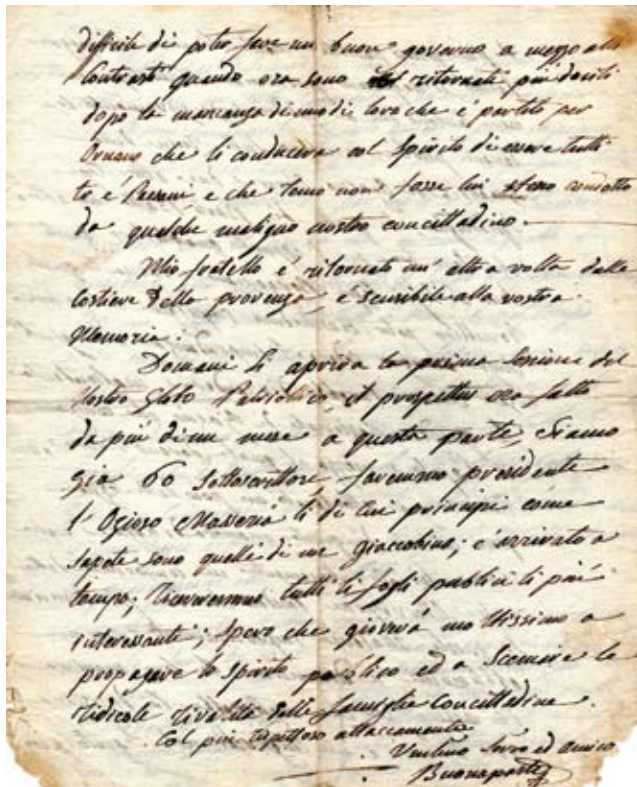 difficile di poter fare un buon governo a mezzo alli
Contrasti quando ora sono ritornati più docili
dopo la mancanza di uno di loro che è partito per
Ornano che li conduceva col Spirito di essere tutti
te è Paesani e che temo non fosse lui stesso condotto
da qualche maligno nostro concittadino.
Mio fratello è ritornato un' altra volta dalle
Costiere Della provenza, è sensibile alla vostra
Memoria.
Domani Si aprirà la prima Sessione del
Nostro Globo Patriotico il prospettus era fatto
da più di un mese a questa parte, Siamo
già 60 Sottoscrittori, faremmo presidente
l' Ozioso Masseria li di cui principi come
sapete sono quelli di un giaccobino; è arrivato a
tempo; riceveremmo tutti li fogli publici li più
interessanti; Spero che gioverà moltissimo a
propagare lo Spirito publico ed a Scemare le
ridicole rivalità delle famiglie Concittadine.
Col più rispettoso attaccamento
Umilmo Servo ed Amico
Buonaparte